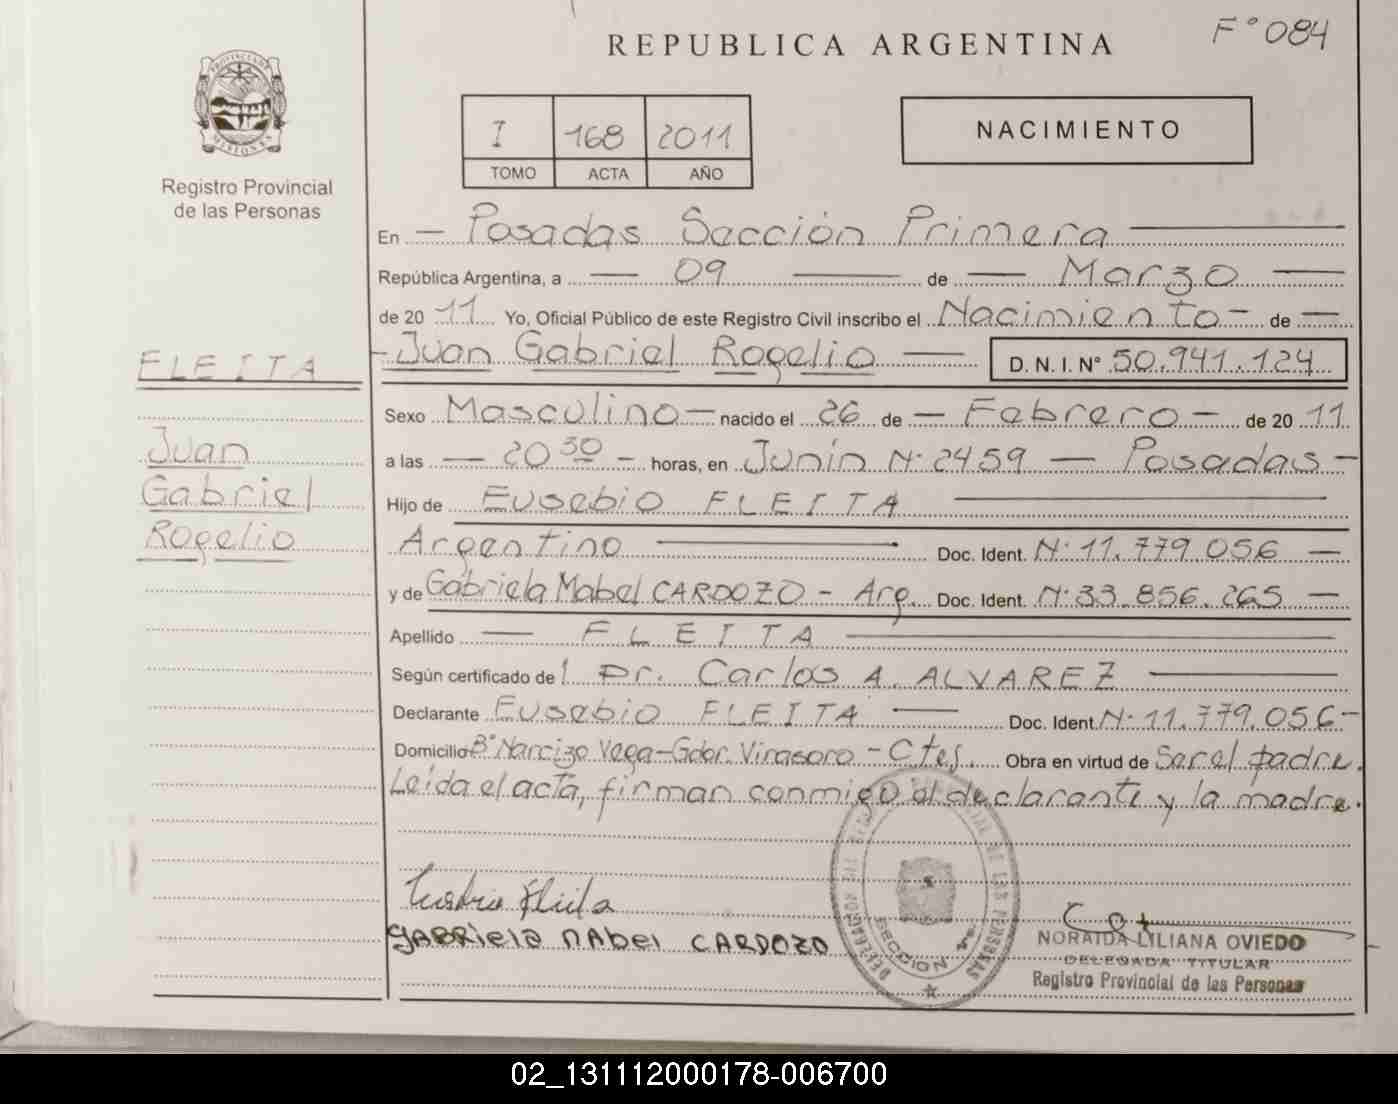 REPUBLICA ARGENTINA
F° 084
PROVINCIA DE MISIONES
Registro Provincial
de las Personas
I 168 2011
TOMO ACTA AÑO
NACIMIENTO
En — Posadas Sección Primera —
República Argentina, a — 09 — de — Marzo —
de 20 11 Yo, Oficial Público de este Registro Civil inscribo el Nacimiento — de —
— Juan Gabriel Rogelio — D. N. I. N° 50.941.124
FLEITA
Juan
Gabriel
Rogelio
Sexo Masculino — nacido el 26 de — Febrero — de 20 11
a las — 20 30 — horas, en Junín N° 2459 — Posadas —
Hijo de Eusebio FLEITA —
Argentino — Doc. Ident. N° 11.779.056 —
y de Gabriela Mabel CARDOZO — Arg. Doc. Ident. N° 33.856.265 —
Apellido — FLEITA —
Según certificado del Dr. Carlos A. ALVAREZ —
Declarante Eusebio FLEITA — Doc. Ident. N° 11.779.056 —
Domicilio B° Narcizo Vega — Gdor. Virasoro — Ctes. Obra en virtud de Ser el padre.
Leída el acta, firman conmigo el declarante y la madre.
Eusebio Fleita
GABRIELA MABEL CARDOZO
DE LAS PERSONAS
SECCION 1a.
NORAIDA LILIANA OVIEDO
DELEGADA TITULAR
Registro Provincial de las Personas
02_131112000178-006700